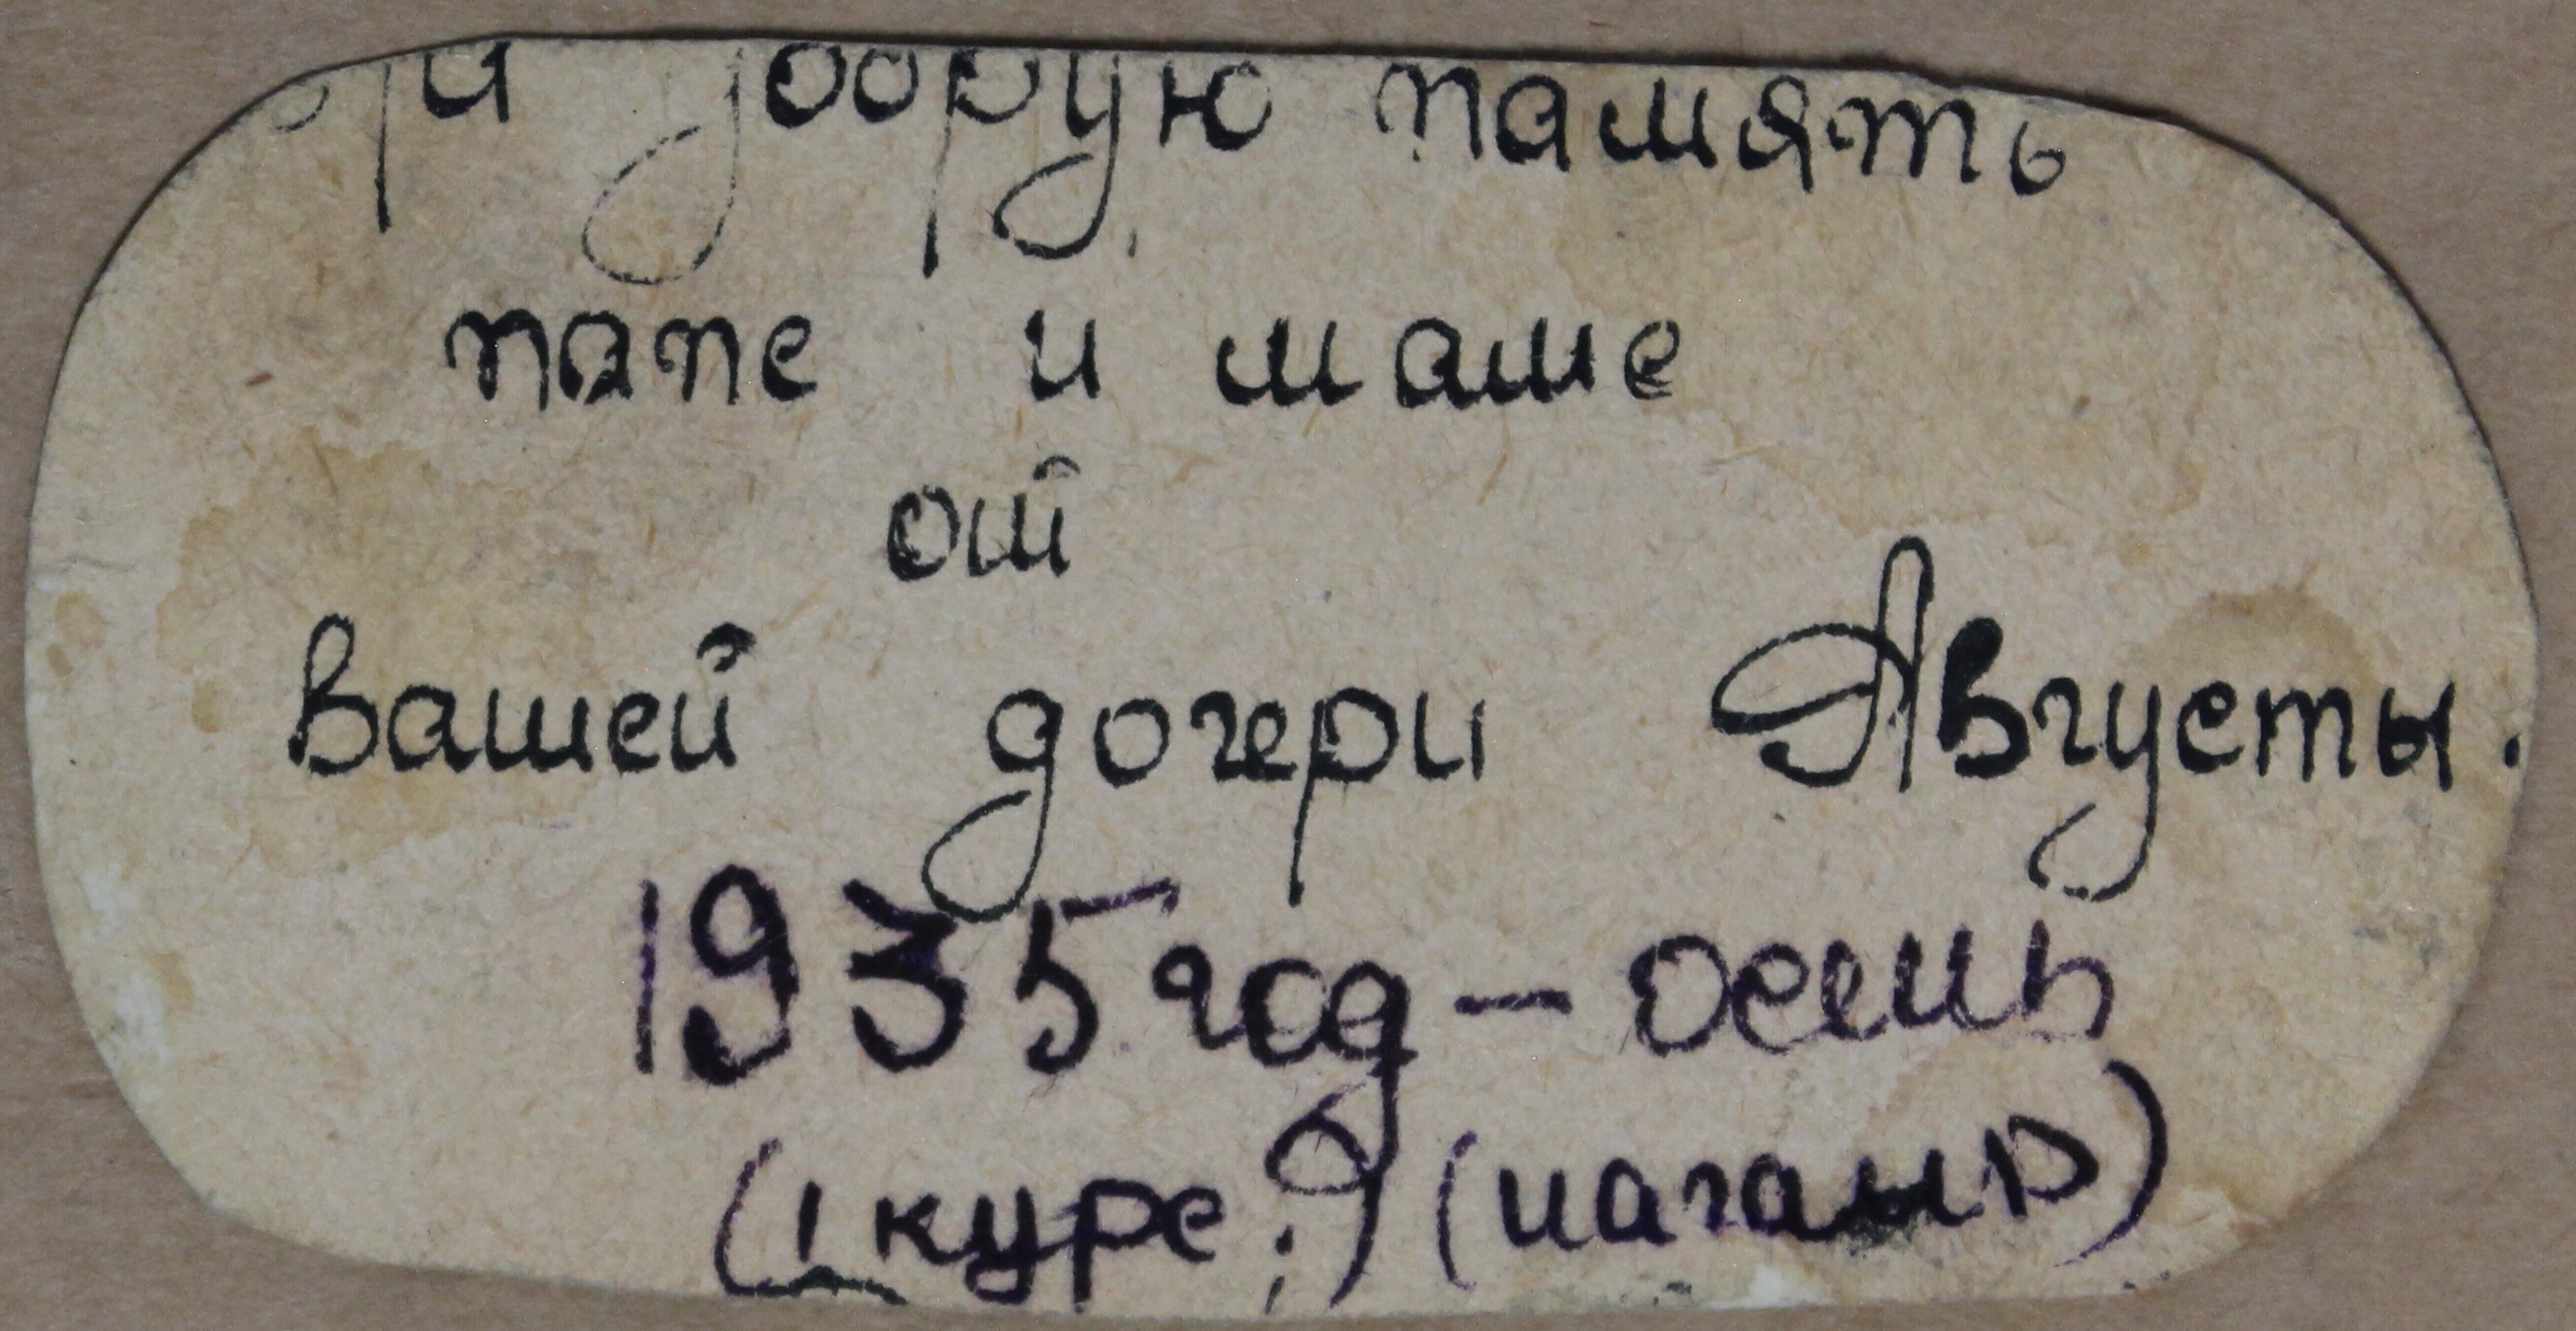 добрую память
папе и маме
от
вашей дочери Августы.
1935 год – осень
(1 курс.) (начало)